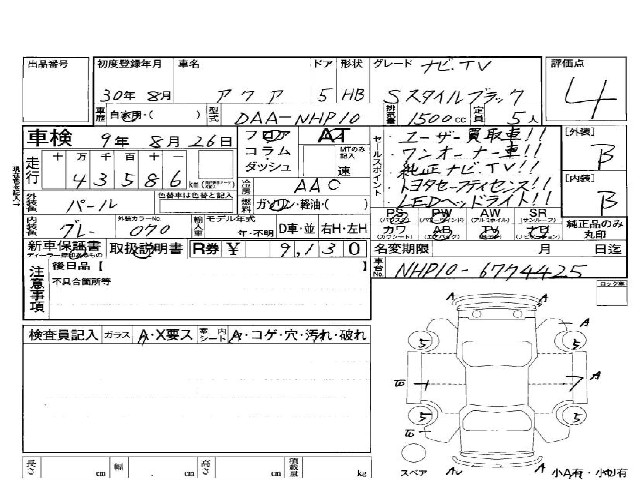 出品番号
初度登録年月 車名 ドア 形状 グレード ナビ.TV 評価点
30年 8月 アクア 5 HB Sスタイルブラック 4
車歴 自家用・( ) 型式 DAA-NHP10 排気量 1500cc 定員 5人
車検 9年 8月 26日 フロア AT
コラム MTのみ記入
ダッシュ 速
セールスポイント
ユーザー買取車!!
ワンオーナー車!!
純正ナビ.TV!!
トヨタセーフティセンス!!
LEDヘッドライト!!
[外装] B
[内装] B
走行 十 万 千 百 十 一
43586 km
冷房 AAC
外装色 パール 色替車は色替と記入 燃料 ガソリン・軽油・( )
内装色 グレー 外装カラーNo. 070 輸入車 モデル年式 年・不明 D車・並 右H・左H
PS PW AW SR
カワ AB TV ナビ
純正品のみ丸印
新車保証書 取扱説明書 R券 ¥ 9,130 名変期限 月 日迄
ディーラー押印あるもの
車台No. NHP10-6774425
注意事項 後日品【 】
不具合箇所等
ロック車
検査員記入 ガラス A・X要ス 内シート A・コゲ・穴・汚れ・破れ
A
A
5 5
A
5 5
A A
スペア 小A有・小凹有
長さ cm 幅 cm 高さ cm 積載量 kg